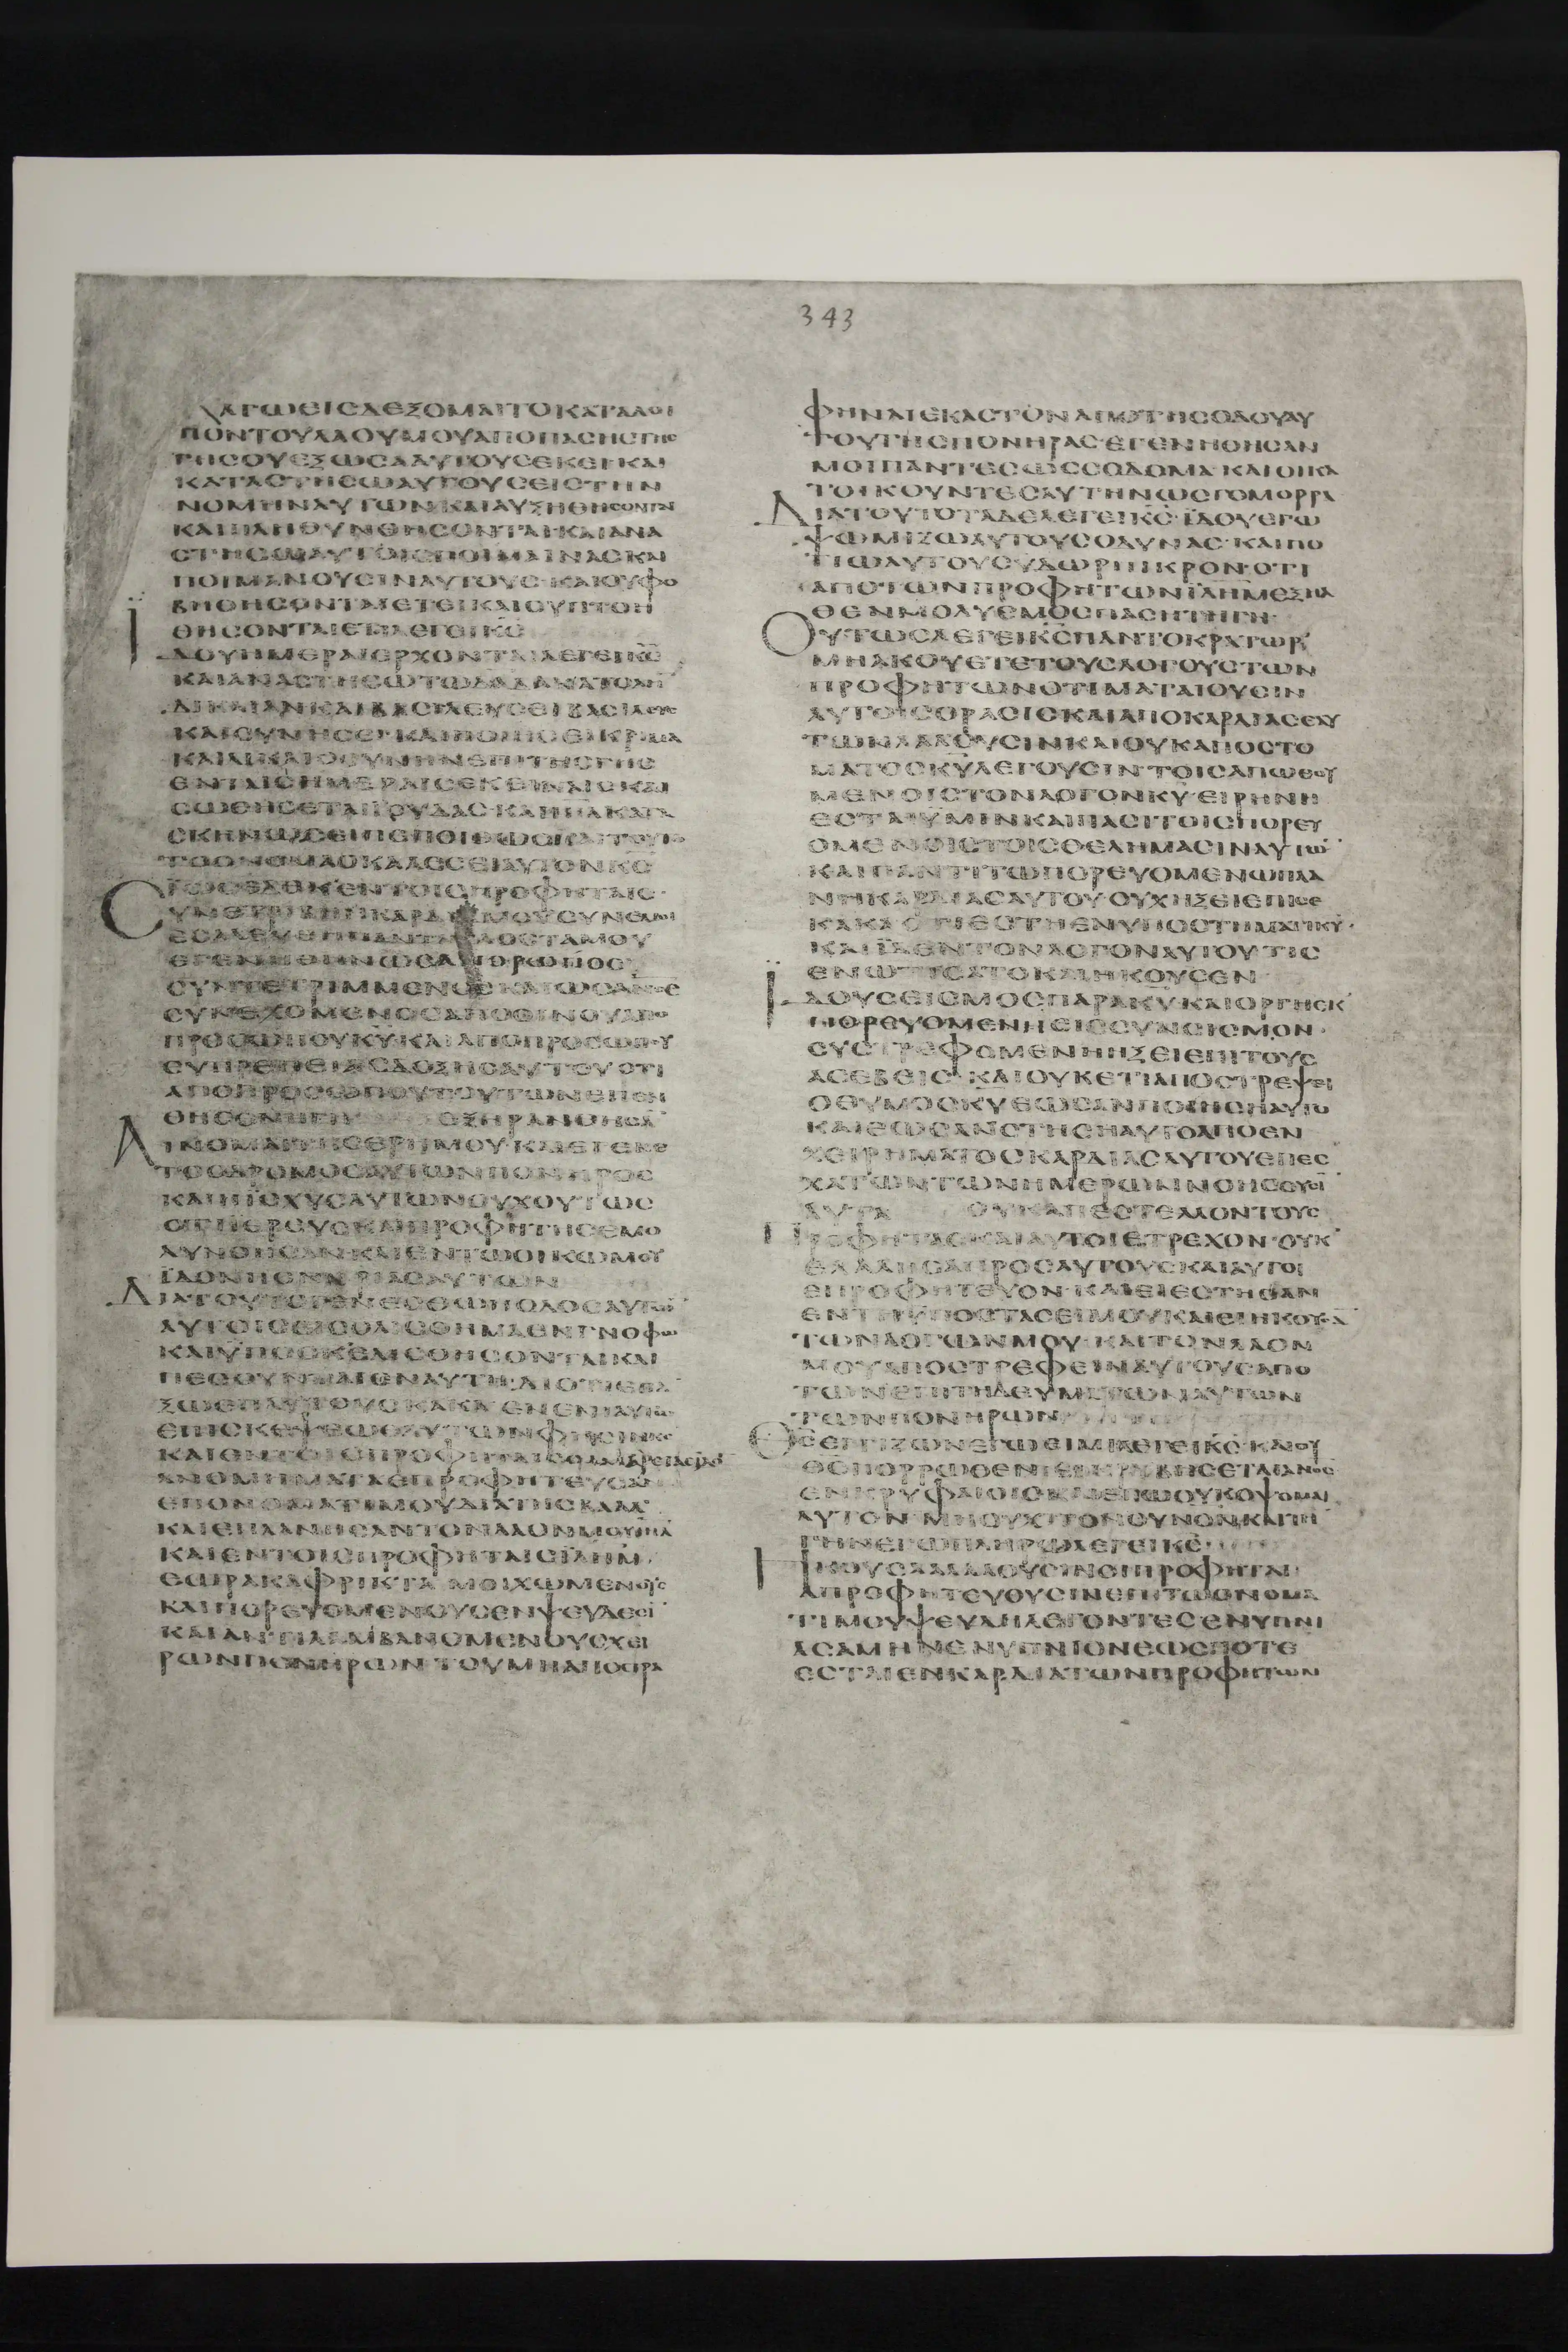 343
ΚΑΓΩΕΙΣΔΕΞΟΜΑΙΤΟΚΑΤΑΛΟΙ
ΠΟΝΤΟΥΛΑΟΥΜΟΥΑΠΟΠΑCΗCΓΗC
ΓΗCΟΥΕΞΩCΑΑΥΤΟΥCΕΚΕΙΚΑΙ
ΚΑΤΑCΤΗCΩΑΥΤΟΥCΕΙCΤΗΝ
ΝΟΜΗΝΑΥΤΩΝΚΑΙΑΥΞΗΘΗCΟΝΤΑΙ
ΚΑΙΠΛΗΘΥΝΘΗCΟΝΤΑΙΚΑΙΑΝΑ
CΤΗCΩΑΥΤΟΙCΠΟΙΜΑΙΝΑCΚΑΙ
ΠΟΙΜΑΝΟΥCΙΝΑΥΤΟΥC·ΚΑΙΟΥΦΟ
ΒΗΘΗCΟΝΤΑΙΕΤΙΚΑΙΟΥΠΤΟΗ
ΘΗCΟΝΤΑΙΕΤΙΛΕΓΕΙΚC
ΪΔΟΥΗΜΕΡΑΙΕΡΧΟΝΤΑΙΛΕΓΕΙΚC
ΚΑΙΑΝΑCΤΗCΩΤΩΔΑΔΑΝΑΤΟΛΗ
ΔΙΚΑΙΑΝΚΑΙΒΑCΙΛΕΥCΕΙΒΑCΙΛΕΥC
ΚΑΙCΥΝΗCΕΙ·ΚΑΙΠΟΙΗCΕΙΚΡΙΜΑ
ΚΑΙΔΙΚΑΙΟCΥΝΗΝΕΠΙΤΗCΓΗC
ΕΝΤΑΙCΗΜΕΡΑΙCΕΚΕΙΝΑΙCΚΑΙ
CΩΘΗCΕΤΑΙΪΟΥΔΑC·ΚΑΙΙΗΛΚΑΤΑ
CΚΗΝΩCΕΙΠΕΠΟΙΘΩC
ΤΟΟΝΟΜΑΟΚΑΛΕCΕΙΑΥΤΟΝΚC
ΪΩCΕΔΕΚΕΝΤΟΙCΠΡΟΦΗΤΑΙC·
CΥΝΕΤΡΙΒΗΗΚΑΡΔΙΑΜΟΥ
ΕCΑΛΕΥΘΗΠΑΝΤΑΤΑΟCΤΑΜΟΥ
ΕΓΕΝΗΘΗΝΩCΑΝΘΡΩΠΟC
CΥΝΤΕΤΡΙΜΜΕΝΟCΚΑΙΩCΑΝΟC
CΥΝΕΧΟΜΕΝΟCΑΠΟΟΙΝΟΥΑΠΟ
ΠΡΟCΩΠΟΥΚΥΚΑΙΑΠΟΠΡΟCΩΠΟΥ
ΕΥΠΡΕΠΕΙΑCΔΟΞΗCΑΥΤΟΥΟΤΙ
ΑΠΟΠΡΟCΩΠΟΥΤΟΥΤΩΝΕΠΕΝ
ΘΗCΕΝΗΓΗ ΕΞΗΡΑΝΘΗCΑ
ΑΙΝΟΜΑΙΤΗCΕΡΗΜΟΥ·ΚΑΙΕΓΕΝΕ
ΤΟΟΔΡΟΜΟCΑΥΤΩΝΠΟΝΗΡΟC
ΚΑΙΗΪCΧΥCΑΥΤΩΝΟΥΧΟΥΤΩC
ΟΤΙΪΕΡΕΥCΚΑΙΠΡΟΦΗΤΗCΕΜΟ
ΛΥΝΘΗCΑΝΚΑΙΕΝΤΩΟΙΚΩΜΟΥ
ΪΔΟΝΠΟΝΗΡΙΑCΑΥΤΩΝ
ΔΙΑΤΟΥΤΟΓΕΝΕCΘΩΗΟΔΟCΑΥΤΩ
ΑΥΤΟΙCΕΙCΟΛΙCΘΗΜΑΕΝΓΝΟΦΩ
ΚΑΙΫΠΟCΚΕΛΙCΘΗCΟΝΤΑΙΚΑΙ
ΠΕCΟΥΝΤΑΙΕΝΑΥΤΗ·ΔΙΟΤΙΕΠΑ
ΞΩΕΠΑΥΤΟΥCΚΑΚΑ
ΕΠΙCΚΕΨΕΩCΑΥΤΩΝΦΗCΙΝΚC
ΚΑΙΕΝΤΟΙCΠΡΟΦΗΤΑΙC
ΑΝΟΜΗΜΑΤΑΕΠΡΟΦΗΤΕΥCΑ
ΕΠΟΝΟΜΑΤΙΜΟΥΔΙΑΤΗCΒΑΑΛ
ΚΑΙΕΠΛΑΝΗCΑΝΤΟΝΛΑΟΝΜΟΥΙΗΛ
ΚΑΙΕΝΤΟΙCΠΡΟΦΗΤΑΙCΪΛΗΜ
ΕΩΡΑΚΑΦΡΙΚΤΑ ΜΟΙΧΩΜΕΝΟΥC
ΚΑΙΠΟΡΕΥΟΜΕΝΟΥCΕΝΨΕΥΔΕCΙ
ΚΑΙΑΝΤΙΛΑΜΒΑΝΟΜΕΝΟΥCΧΕΙ
ΡΩΝΠΟΝΗΡΩΝΤΟΥΜΗΑΠΟCΤΡΑ
ΦΗΝΑΙΕΚΑCΤΟΝΑΠΟΤΗCΟΔΟΥΑΥ
ΤΟΥΤΗCΠΟΝΗΡΑC·ΕΓΕΝΗΘΗCΑΝ
ΜΟΙΠΑΝΤΕCΩCCΟΔΟΜΑ·ΚΑΙΟΙΚΑ
ΤΟΙΚΟΥΝΤΕCΑΥΤΗΝΩCΓΟΜΟΡΡΑ
ΔΙΑΤΟΥΤΟΤΑΔΕΛΕΓΕΙΚC·ΪΔΟΥΕΓΩ
ΨΩΜΙΖΩΑΥΤΟΥCΟΔΥΝΑC·ΚΑΙΠΟ
ΤΙΩΑΥΤΟΥCΥΔΩΡΠΙΚΡΟΝ·ΟΤΙ
ΑΠΟΤΩΝΠΡΟΦΗΤΩΝΪΛΗΜΕΞΗΛ
ΘΕΝΜΟΛΥCΜΟCΠΑCΗΤΗΓΗ·
ΟΥΤΩCΛΕΓΕΙΚCΠΑΝΤΟΚΡΑΤΩΡ
ΜΗΑΚΟΥΕΤΕΤΟΥCΛΟΓΟΥCΤΩΝ
ΠΡΟΦΗΤΩΝΟΤΙΜΑΤΑΙΟΥCΙΝ
ΑΥΤΟΙCΟΡΑCΙCΚΑΙΑΠΟΚΑΡΔΙΑCΕΑΥ
ΤΩΝΛΑΛΟΥCΙΝΚΑΙΟΥΚΑΠΟCΤΟ
ΜΑΤΟCΚΥΛΕΓΟΥCΙΝ·ΤΟΙCΑΠΩΘΟΥ
ΜΕΝΟΙCΤΟΝΛΟΓΟΝΚΥ·ΕΙΡΗΝΗ
ΕCΤΑΙΥΜΙΝΚΑΙΠΑCΙΤΟΙCΠΟΡΕΥ
ΟΜΕΝΟΙCΤΟΙCΘΕΛΗΜΑCΙΝΑΥΤΩ
ΚΑΙΠΑΝΤΙΤΩΠΟΡΕΥΟΜΕΝΩΠΛΑ
ΝΗΚΑΡΔΙΑCΑΥΤΟΥ·ΟΥΧΗΞΕΙΕΠΙCΕ
ΚΑΚΑ·ΟΤΙCΕCΤΗΕΝΥΠΟCΤΗΜΑΤΙΚΥ·
ΚΑΙΪΔΕΝΤΟΝΛΟΓΟΝΑΥΤΟΥ·ΤΙC
ΕΝΩΤΙCΑΤΟΚΑΙΗΚΟΥCΕΝ
ΪΔΟΥCΕΙCΜΟCΠΑΡΑΚΥ·ΚΑΙΟΡΓΗΕΚ
ΠΟΡΕΥΟΜΕΝΗΕΙCCΥΝCΕΙCΜΟΝ·
CΥCΤΡΕΦΟΜΕΝΗΗΞΕΙΕΠΙΤΟΥC
ΑCΕΒΕΙC·ΚΑΙΟΥΚΕΤΙΑΠΟCΤΡΕΨΕΙ
ΟΘΥΜΟCΚΥΕΩCΑΝΠΟΙΗCΗΑΥΤΟ
ΚΑΙΕΩCΑΝCΤΗCΗΑΥΤΟΑΠΟΕΝ
ΧΕΙΡΗΜΑΤΟCΚΑΡΔΙΑCΑΥΤΟΥΕΠΕC
ΧΑΤΩΝΤΩΝΗΜΕΡΩΝΝΟΗCΟΥCΙ
ΑΥΤΑ ΟΥΚΑΠΕCΤΕΛΛΟΝΤΟΥC
ΠΡΟΦΗΤΑCΚΑΙΑΥΤΟΙΕΤΡΕΧΟΝ·ΟΥΚ
ΕΛΑΛΗCΑΠΡΟCΑΥΤΟΥCΚΑΙΑΥΤΟΙ
ΕΠΡΟΦΗΤΕΥΟΝ·ΚΑΙΕΙΕCΤΗCΑΝ
ΕΝΤΗΥΠΟCΤΑCΕΙΜΟΥΚΑΙΕΙΗΚΟΥCΑ
ΤΩΝΛΟΓΩΝΜΟΥ·ΚΑΙΤΟΝΛΑΟΝ
ΜΟΥΑΠΟCΤΡΕΦΕΙΝΑΥΤΟΥCΑΠΟ
ΤΩΝΕΠΙΤΗΔΕΥΜΑΤΩΝΑΥΤΩΝ
ΤΩΝΠΟΝΗΡΩΝ
ΘCΕΓΓΙΖΩΝΕΓΩΕΙΜΙΛΕΓΕΙΚC·ΚΑΙΟΥ
ΘCΠΟΡΡΩΘΕΝ
ΕΝΚΡΥΦΑΙΟΙCΚΑΙΕΓΩΟΥΚΟΨΟΜΑΙ
ΑΥΤΟΝ·ΜΗΟΥΧΙΤΟΝΟΥΝΟΝΚΑΙΤΗ
ΓΗΝΕΓΩΠΛΗΡΩΛΕΓΕΙΚC
ΗΚΟΥCΑΑΛΑΛΟΥCΙΝΟΙΠΡΟΦΗΤΑΙ
ΑΠΡΟΦΗΤΕΥΟΥCΙΝΕΠΙΤΩΟΝΟΜΑ
ΤΙΜΟΥΨΕΥΔΗΛΕΓΟΝΤΕCΕΝΥΠΝΙ
ΑCΑΜΗΝΕΝΥΠΝΙΟΝΕΩCΠΟΤΕ
ΕCΤΑΙΕΝΚΑΡΔΙΑΤΩΝΠΡΟΦΗΤΩΝ